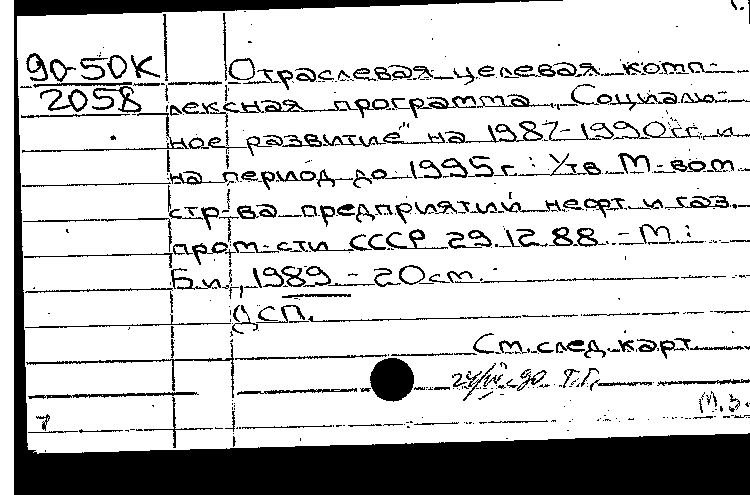 90-50К
2058
Отраслевая целевая комп-
лексная программа „Социаль-
ное развитие" на 1987-1990гг. и
на период до 1995г.: Утв. М-вом
стр-ва предприятий нефт. и газ.
пром-сти СССР 29.12.88. - М.:
Б.и., 1989. - 20 см. -
ДСП.
См. след. карт.
90 Т.Г.
7